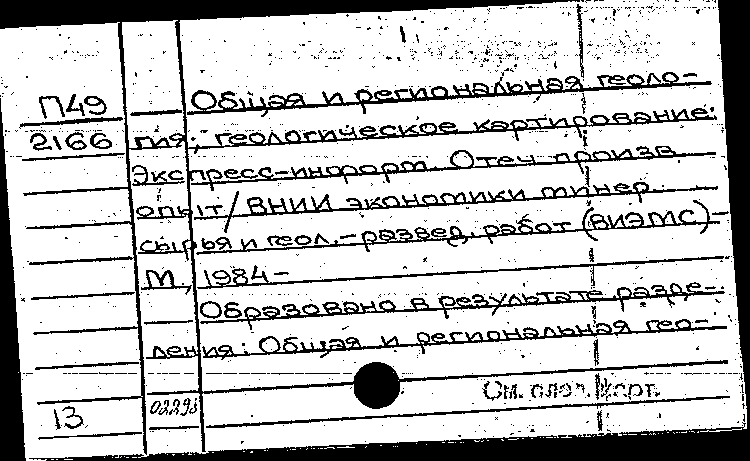 П49 Общая и региональная геоло-
2166 гия; геологическое картирование:
Экспресс-информ. Отеч. произв.
опыт/ВНИИ экономики минер.
сырья и геол.-развед. работ (ВИЭМС)-
М., 1984-
Образовано в результате разде-
ления: Общая и региональная гео-
См. след. карт.
13 02293